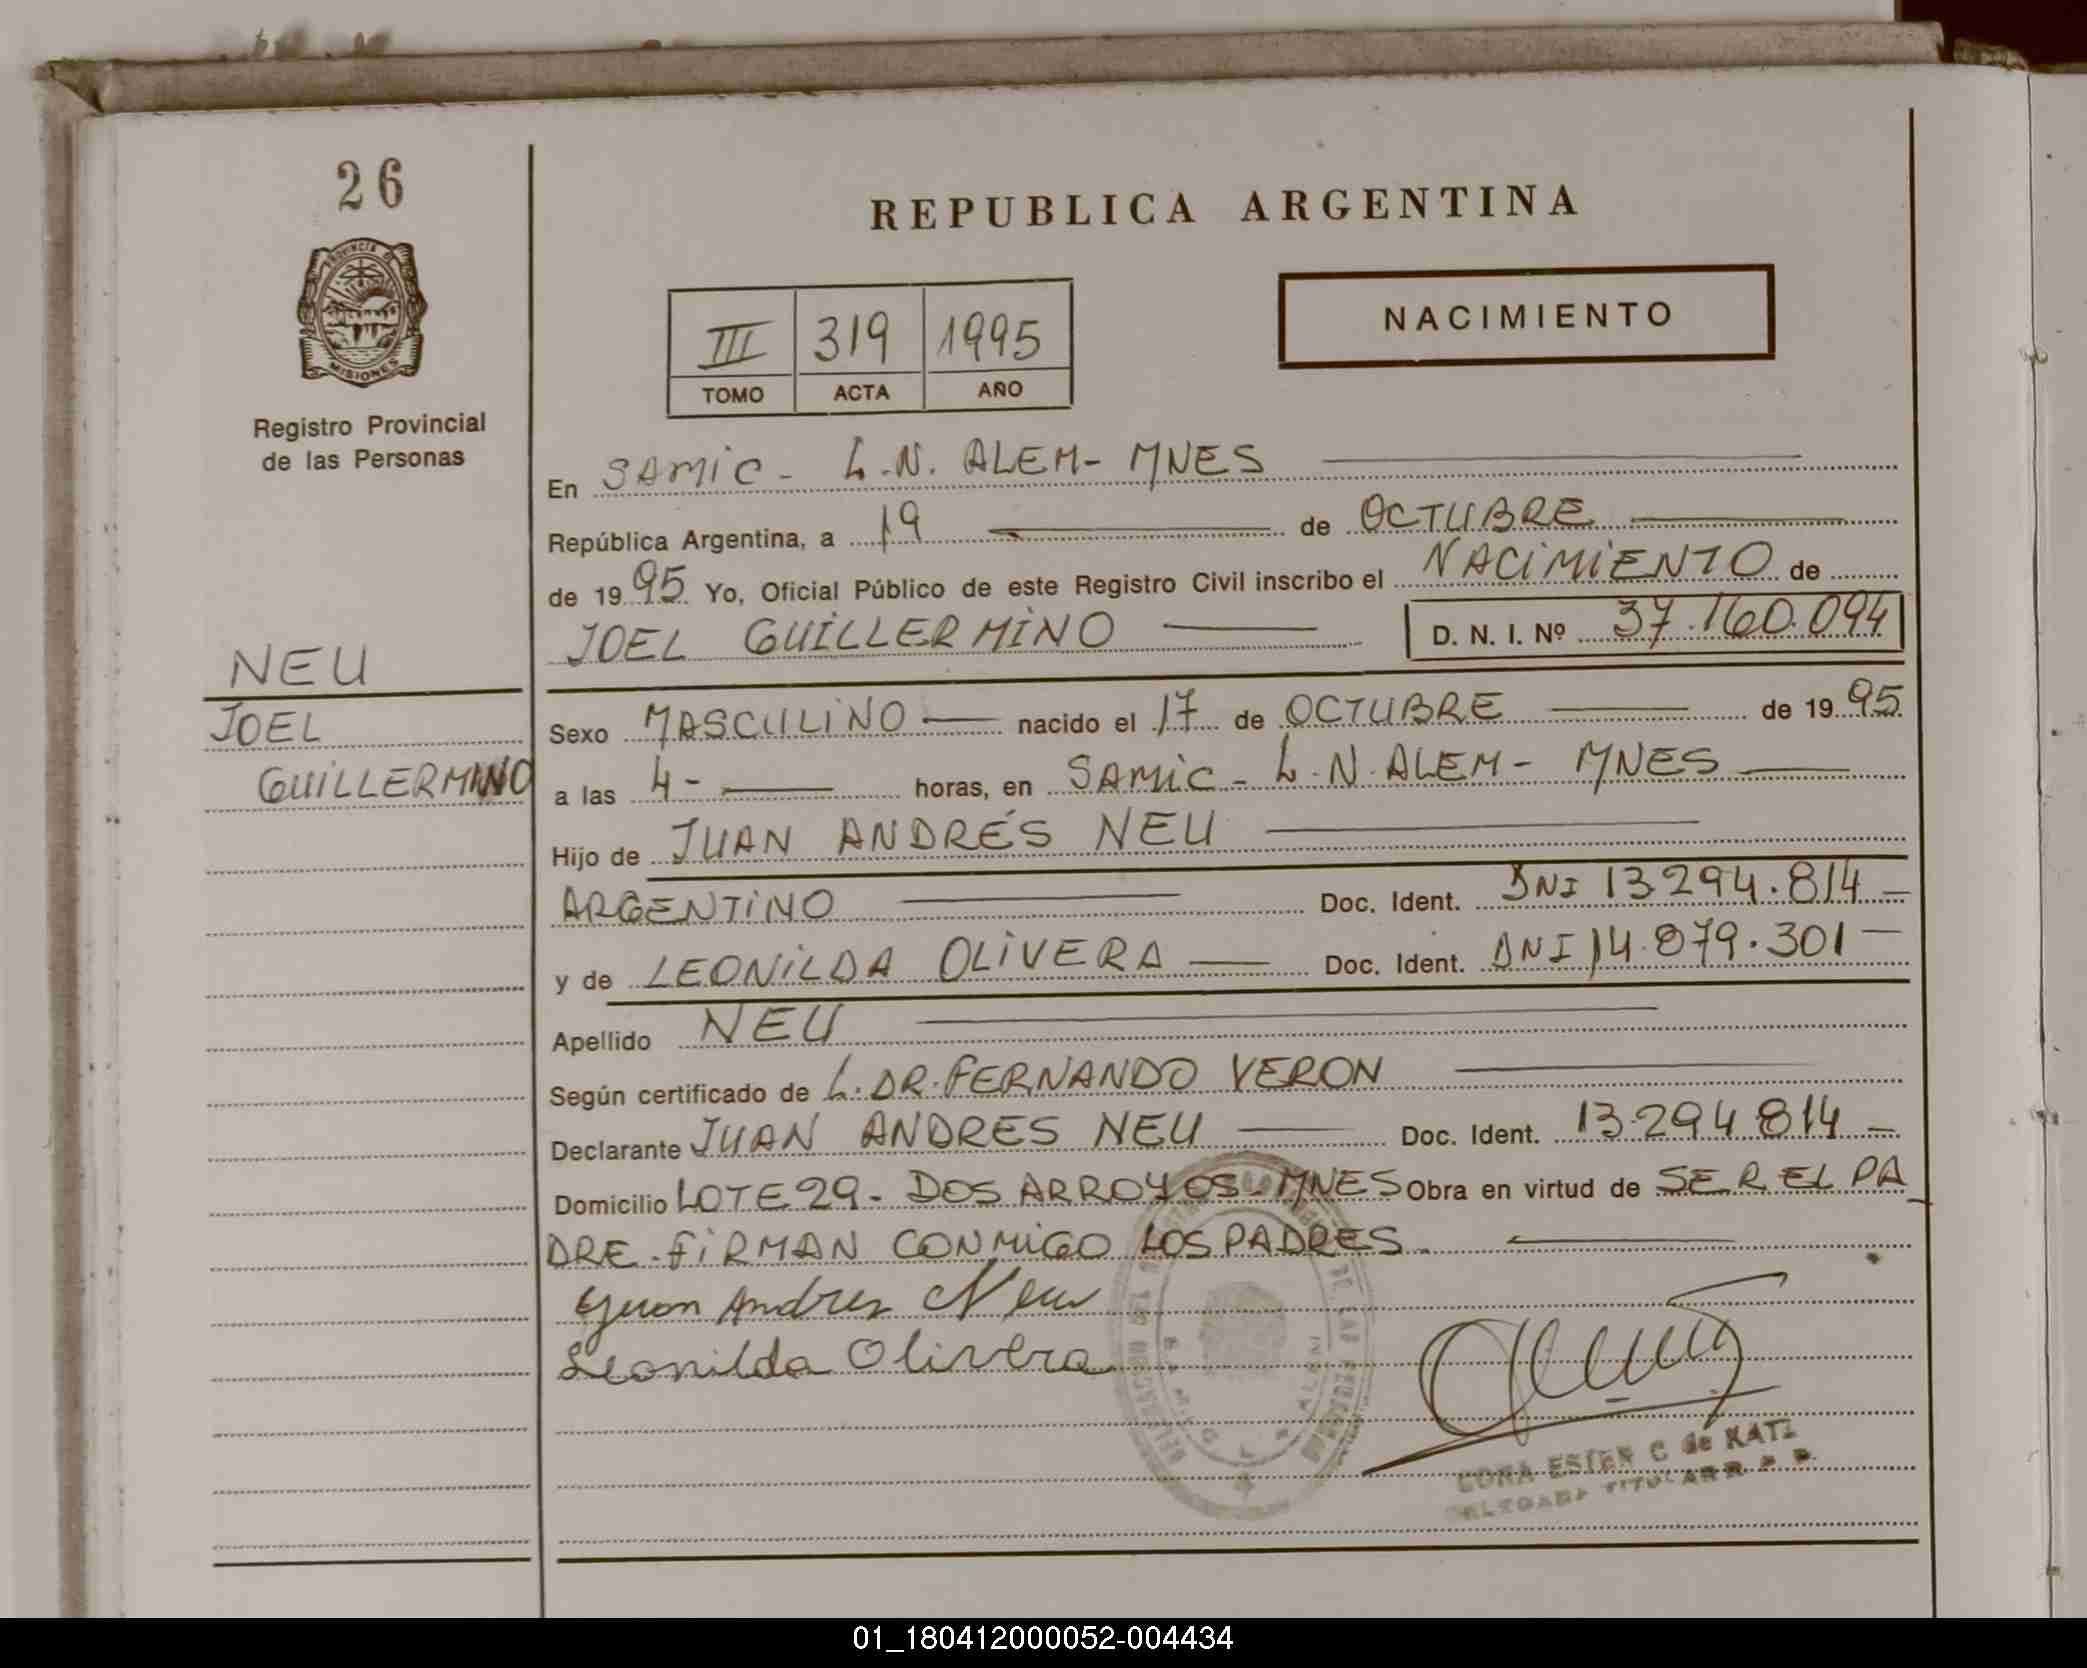 26
PROVINCIA DE
MISIONES
Registro Provincial
de las Personas
NEU
JOEL
GUILLERMINO
REPUBLICA ARGENTINA
III 319 1995
TOMO ACTA AÑO
NACIMIENTO
En SAMIC - L.N. ALEM - MNES
República Argentina, a 19 de OCTUBRE
de 1995 Yo, Oficial Público de este Registro Civil inscribo el NACIMIENTO de
JOEL GUILLERMINO D. N. I. Nº 37.160.094
Sexo MASCULINO nacido el 17 de OCTUBRE de 1995
a las 4- horas, en SAMIC - L.N. ALEM - MNES
Hijo de JUAN ANDRÉS NEU
ARGENTINO Doc. Ident. DNI 13294.814-
y de LEONILDA OLIVERA Doc. Ident. DNI 14.879.301-
Apellido NEU
Según certificado de L. DR. FERNANDO VERON
Declarante JUAN ANDRES NEU Doc. Ident. 13.294.814-
Domicilio LOTE 29 - DOS ARROYOS - MNES Obra en virtud de SER EL PA_
DRE. FIRMAN CONMIGO LOS PADRES.
Juan Andres Neu
Leonilda Olivera
ESTER C de KATZ
TITULAR R. P. P.
01_180412000052-004434